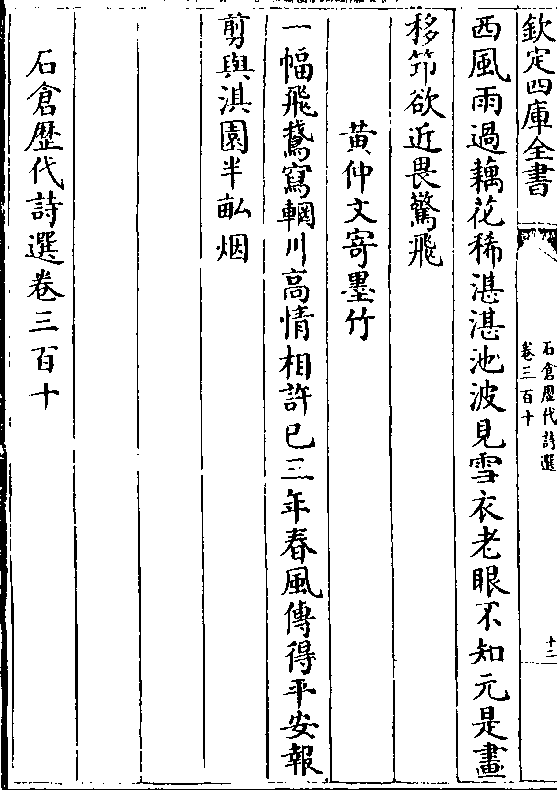 欽定四庫全書
石倉歷代詩選
卷三百十
十二
西風雨過藕花稀湛湛池波見雪衣老眼不知元是畫
移笻欲近畏驚飛
黃仲文寄墨竹
一幅飛鵞寫輞川高情相許已三年春風傳得平安報
剪與淇園半畝烟
石倉歴代詩選卷三百十